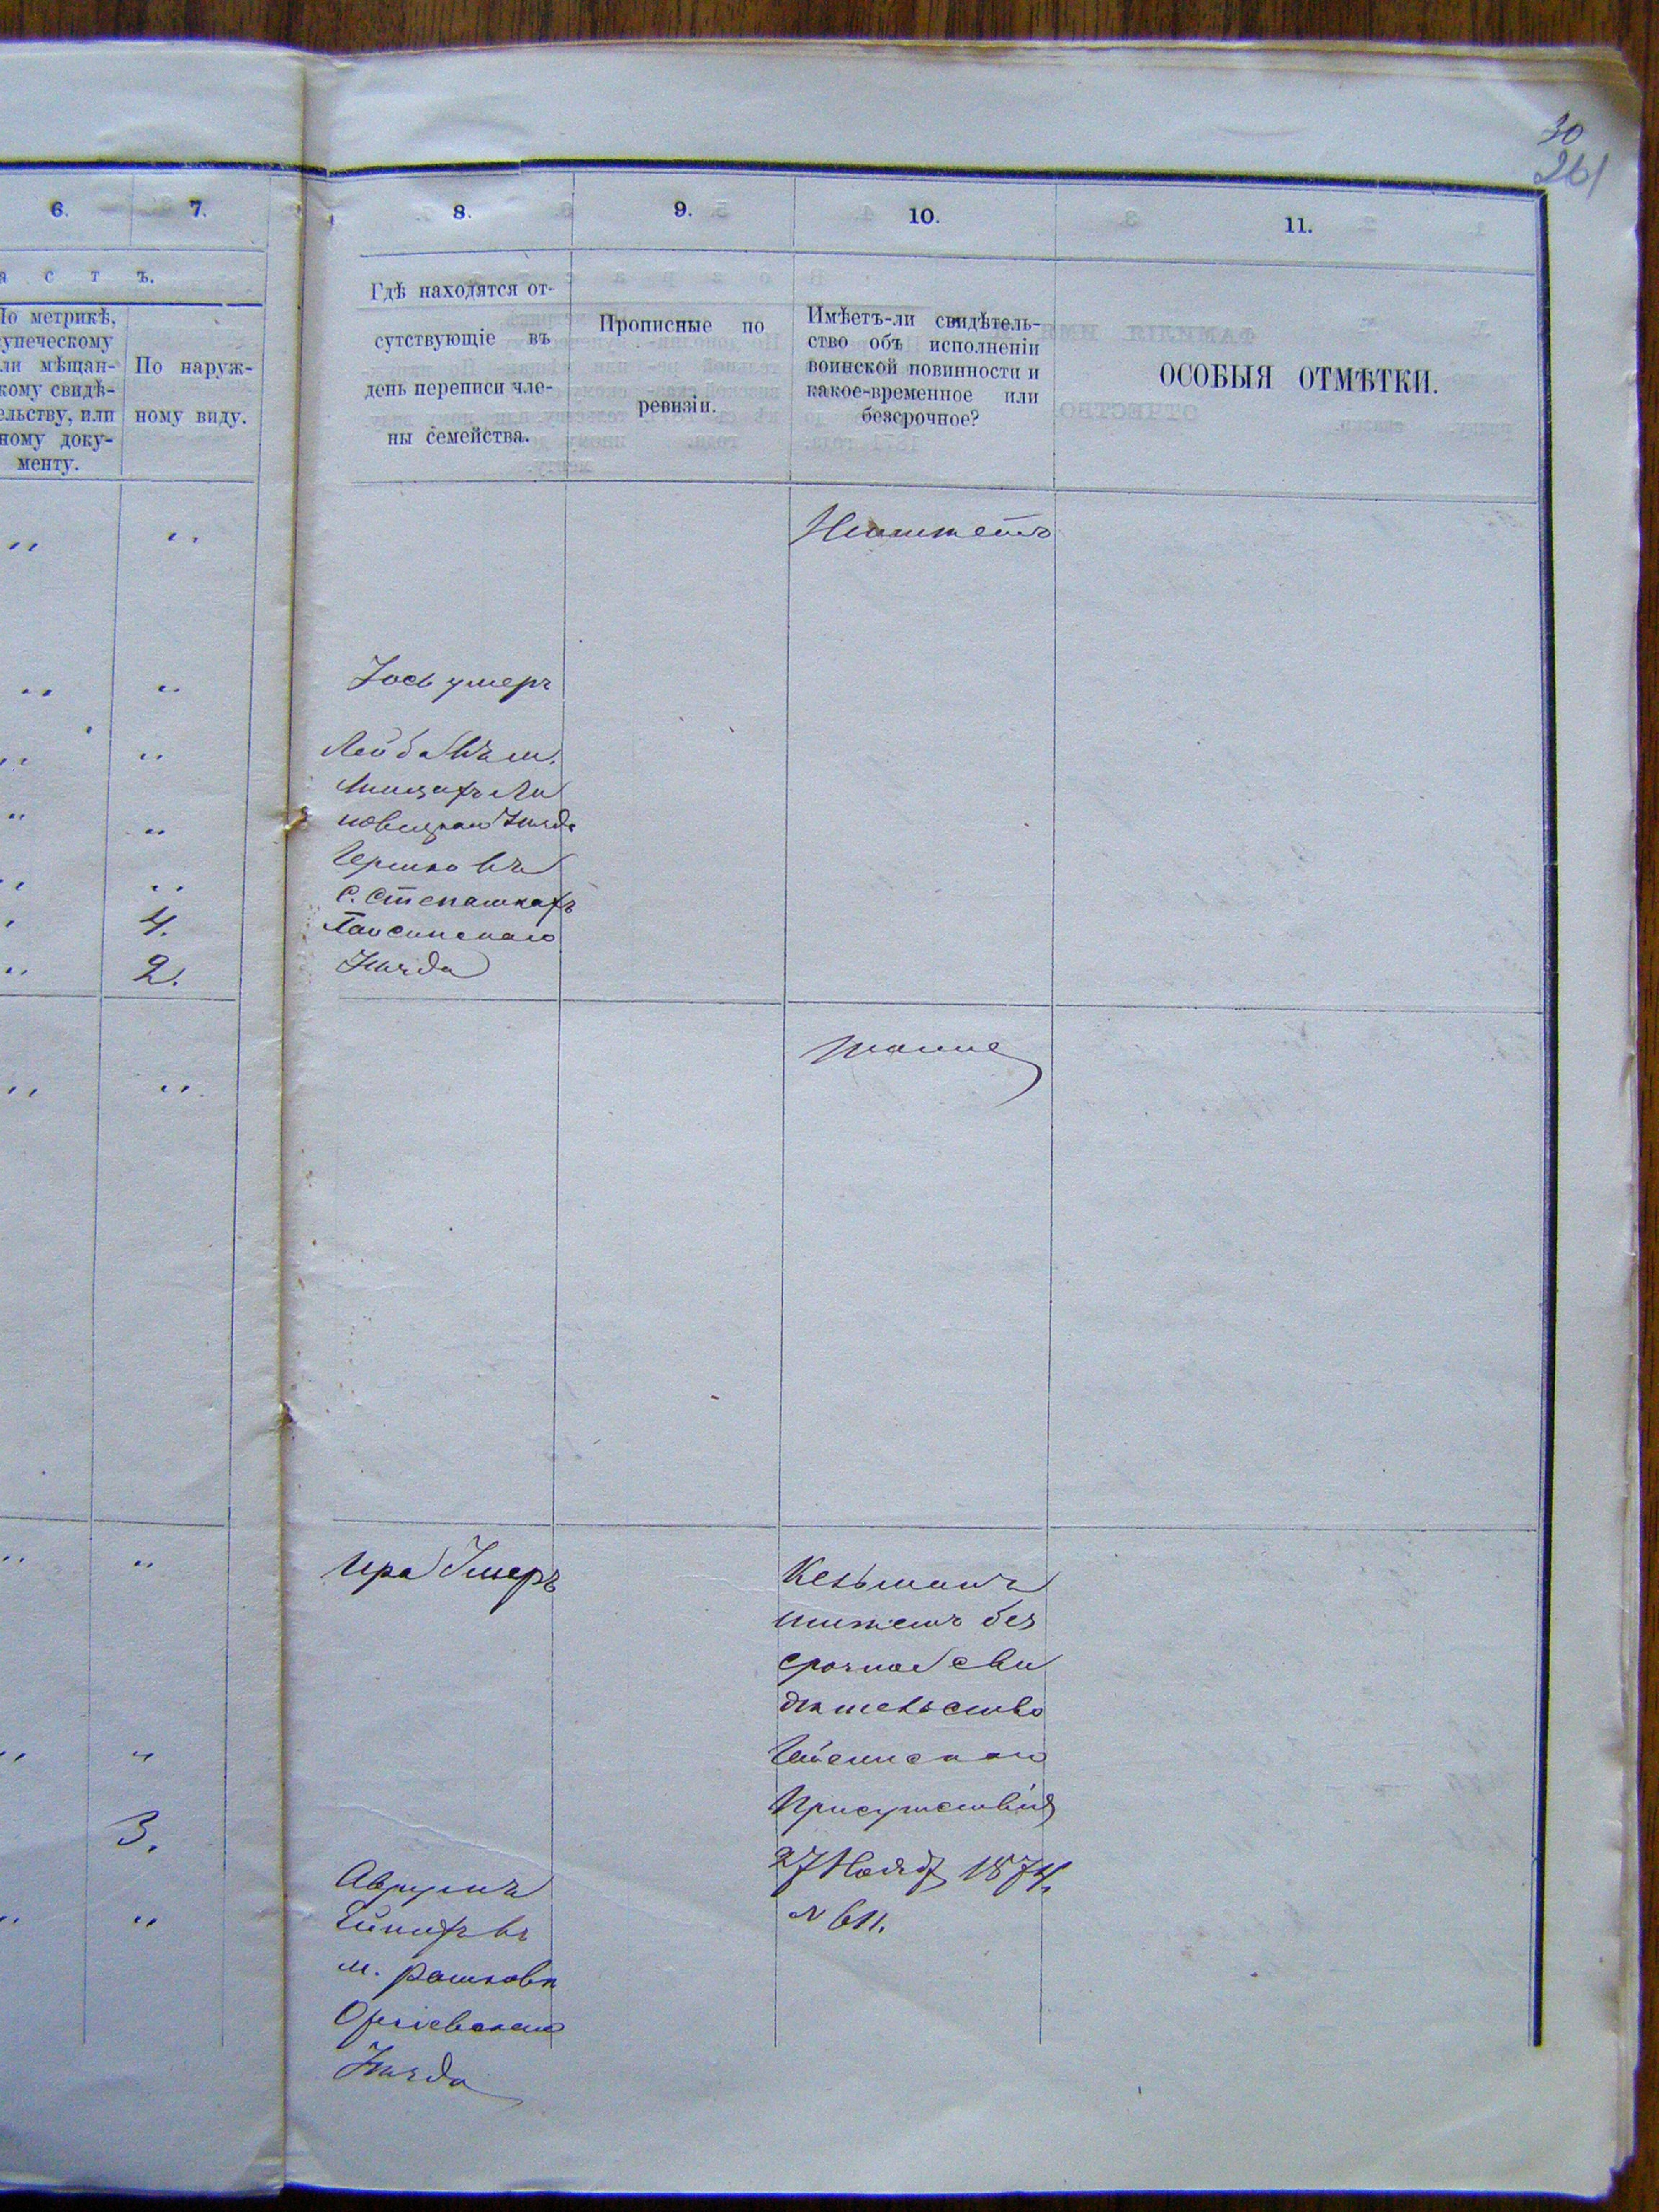 30
261
6. 7. 8. 9. 10. 11.
а с т ъ.
По метрикѣ,
купеческому
или мѣщан-
скому свидѣ-
тельству, или
иному доку-
менту.
По наруж-
ному виду.
Гдѣ находятся от-
сутствующіе въ
день переписи чле-
ны семейства.
Прописные по
ревизіи.
Имѣетъ-ли свидѣтель-
ство объ исполненіи
воинской повинности и
какое-временное или
безсрочное?
ОСОБЫЯ ОТМѢТКИ.
„ „ Неимѣетъ
„ „ Іось умеръ
„ „ Лейба въ м.
„ „
Уѣзда
Гершко въ
„ „ с. Степашкахъ
4. Гайсинскаго
„ 2. Уѣзда
„ „ тоже
„ „ Умеръ
имѣетъ без
срочное сви
дѣтельство
„ „ Гайсинскаго
Присутствія
3. 27 Нояб 1874
№ 611.
Аврумъ
„ „ въ
м. Рашковѣ
Оргіевскаго
Уѣзда